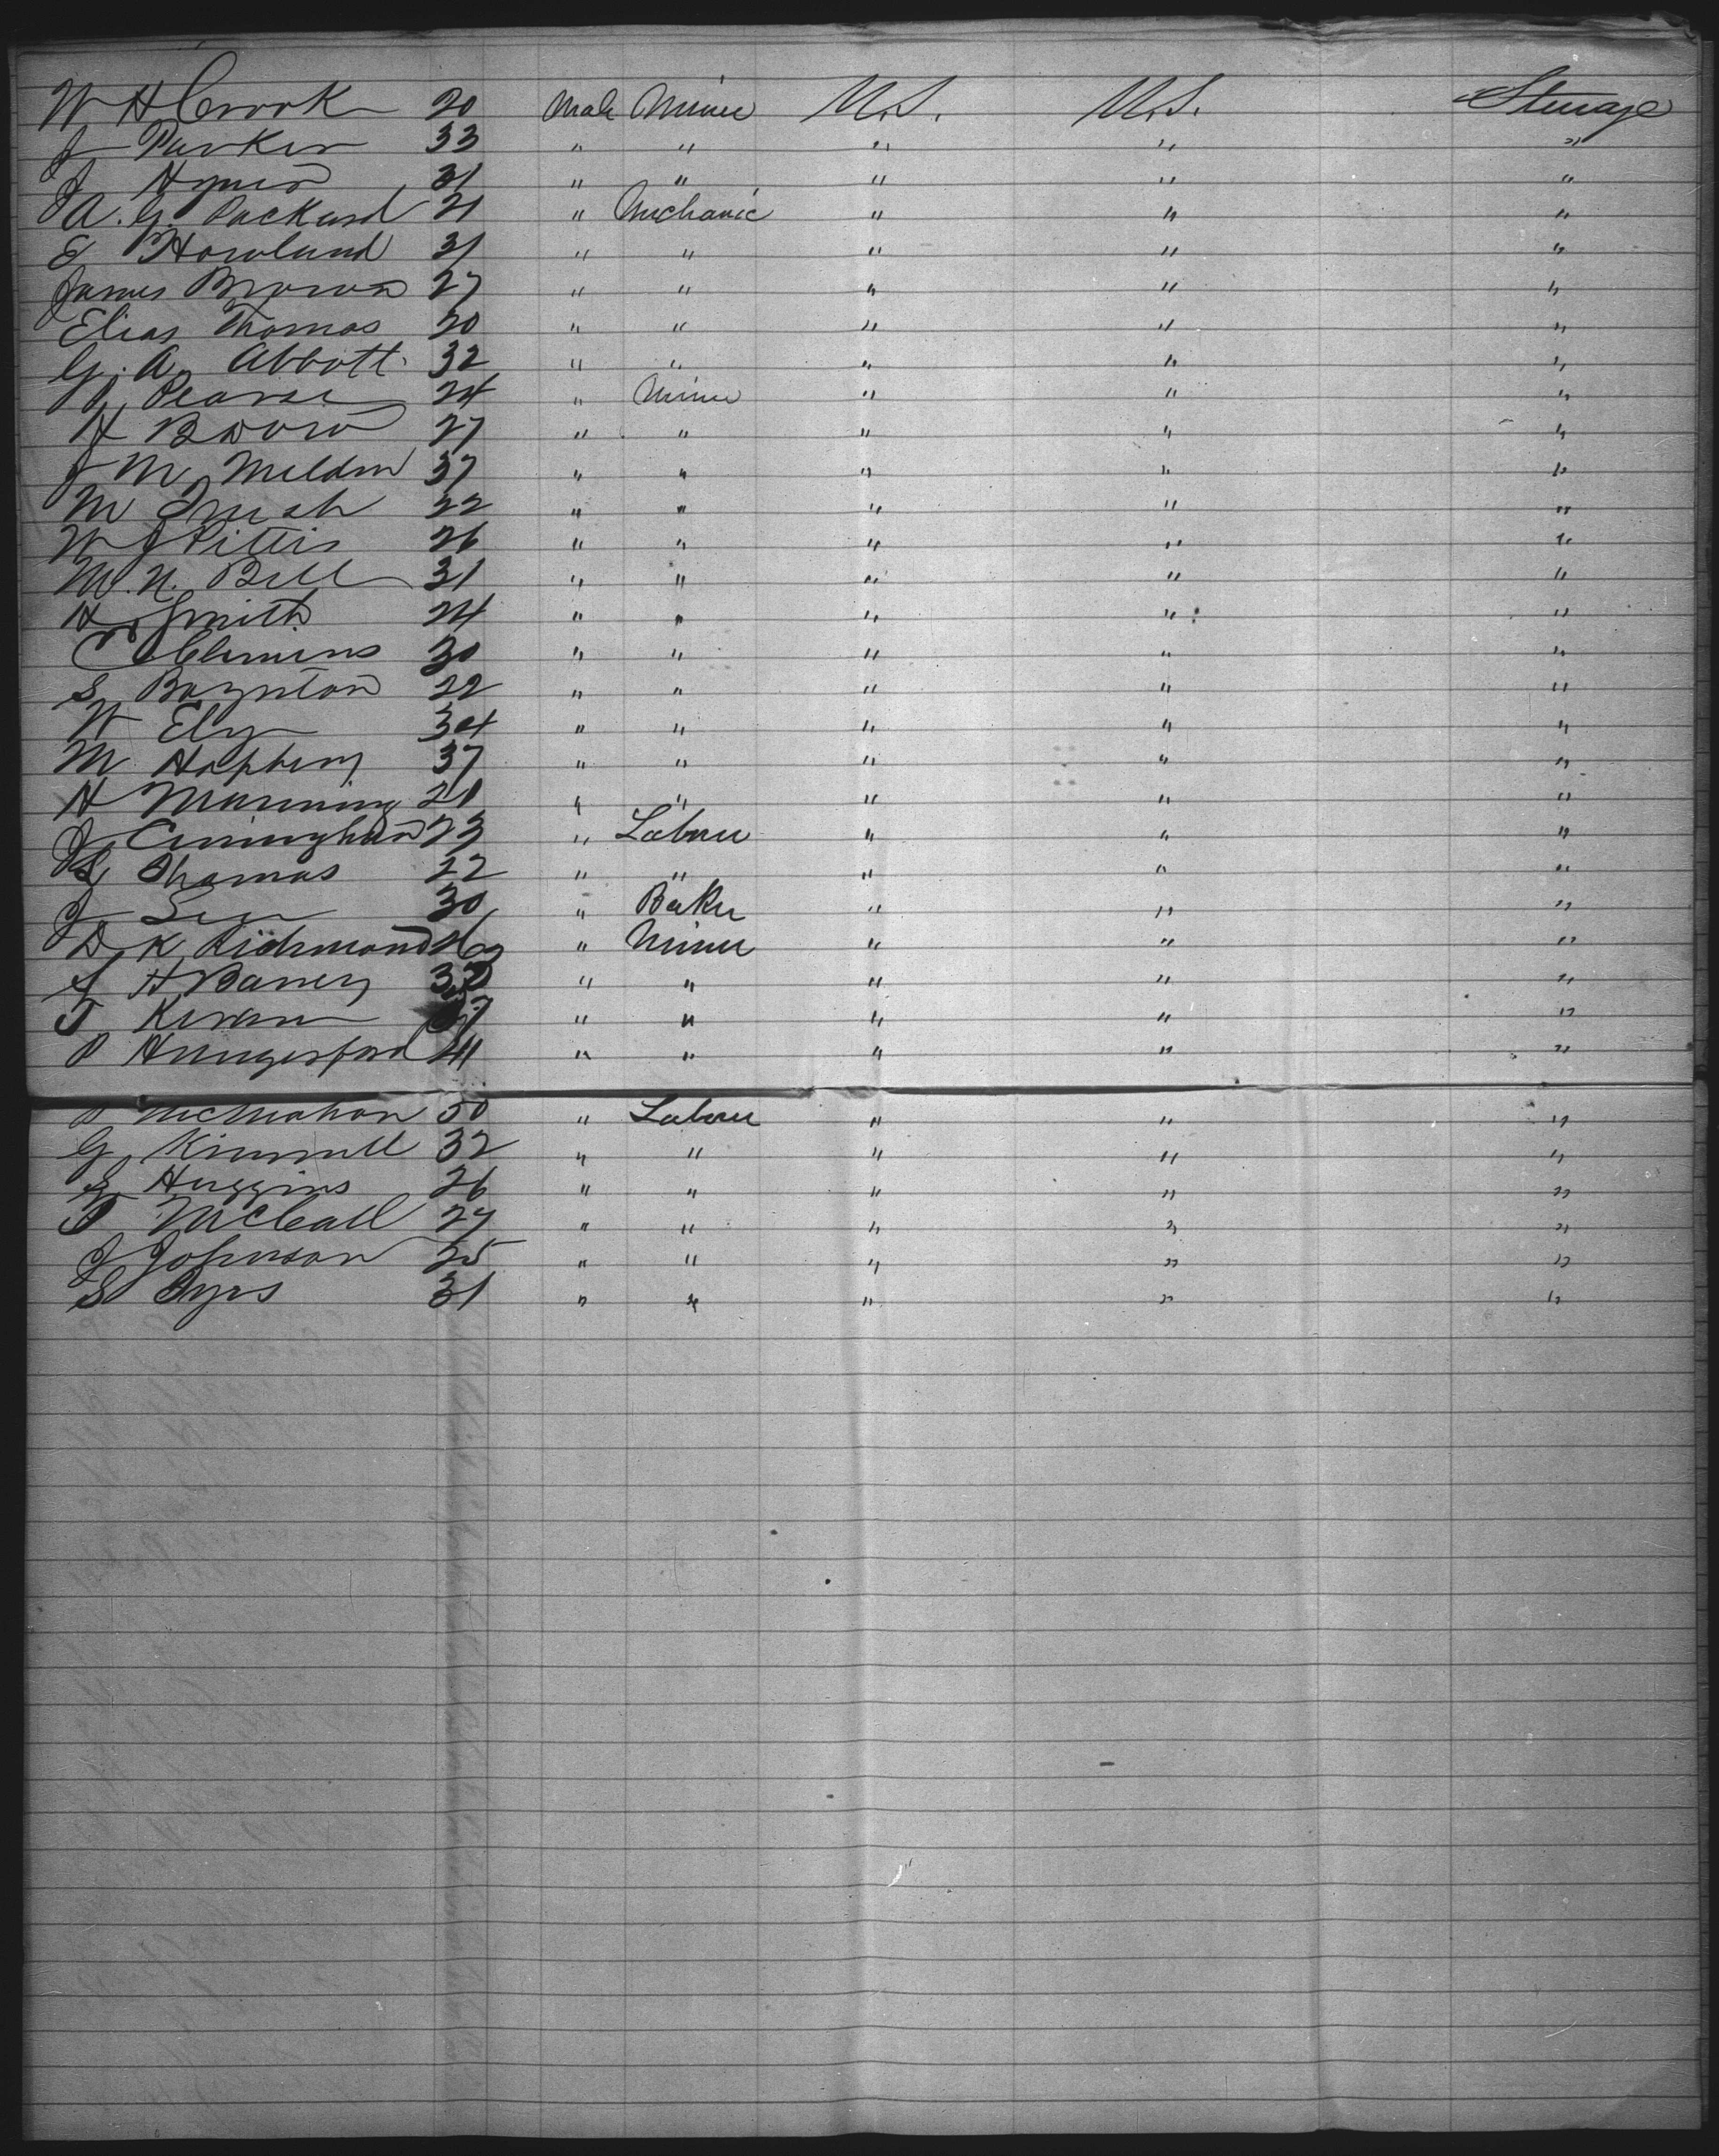 W H Crook 20 Male Miner U.S. U.S. Steerage
J Parker 33 " " " " "
J Hynes 31 " " " " "
A. G. Packard 21 " Mechanic " " "
E Howland 31 " " " " "
James Brown 27 " " " " "
Elias Thomas 20 " " " " "
G. A. Abbott 32 " " " " "
P. Pearse 24 " Miner " " "
H Brown 27 " " " " "
J M Meldon 37 " " " " "
M 22 " " " " "
W J Pittis 26 " " " " "
M. N. Bell 31 " " " " "
H Smith 24 " " " " "
C Clemens 30 " " " " "
S Boynton 22 " " " " "
W Ely 34 " " " " "
M Hopkins 37 " " " " "
H Manning 21 " " " " "
J Cuningham 23 " Laborer " " "
S Thomas 22 " " " " "
J 30 " Baker " " "
D. K. Richmond 26 " Miner " " "
S H " " " " "
T Kiernan 27 " " " " "
P Hungerford 41 " " " " "
P McMahon 50 " Laborer " " "
G 32 " " " " "
S Huggins 26 " " " " "
T McCall 27 " " " " "
J Johnson 25 " " " " "
S Ayrs 31 " " " " "